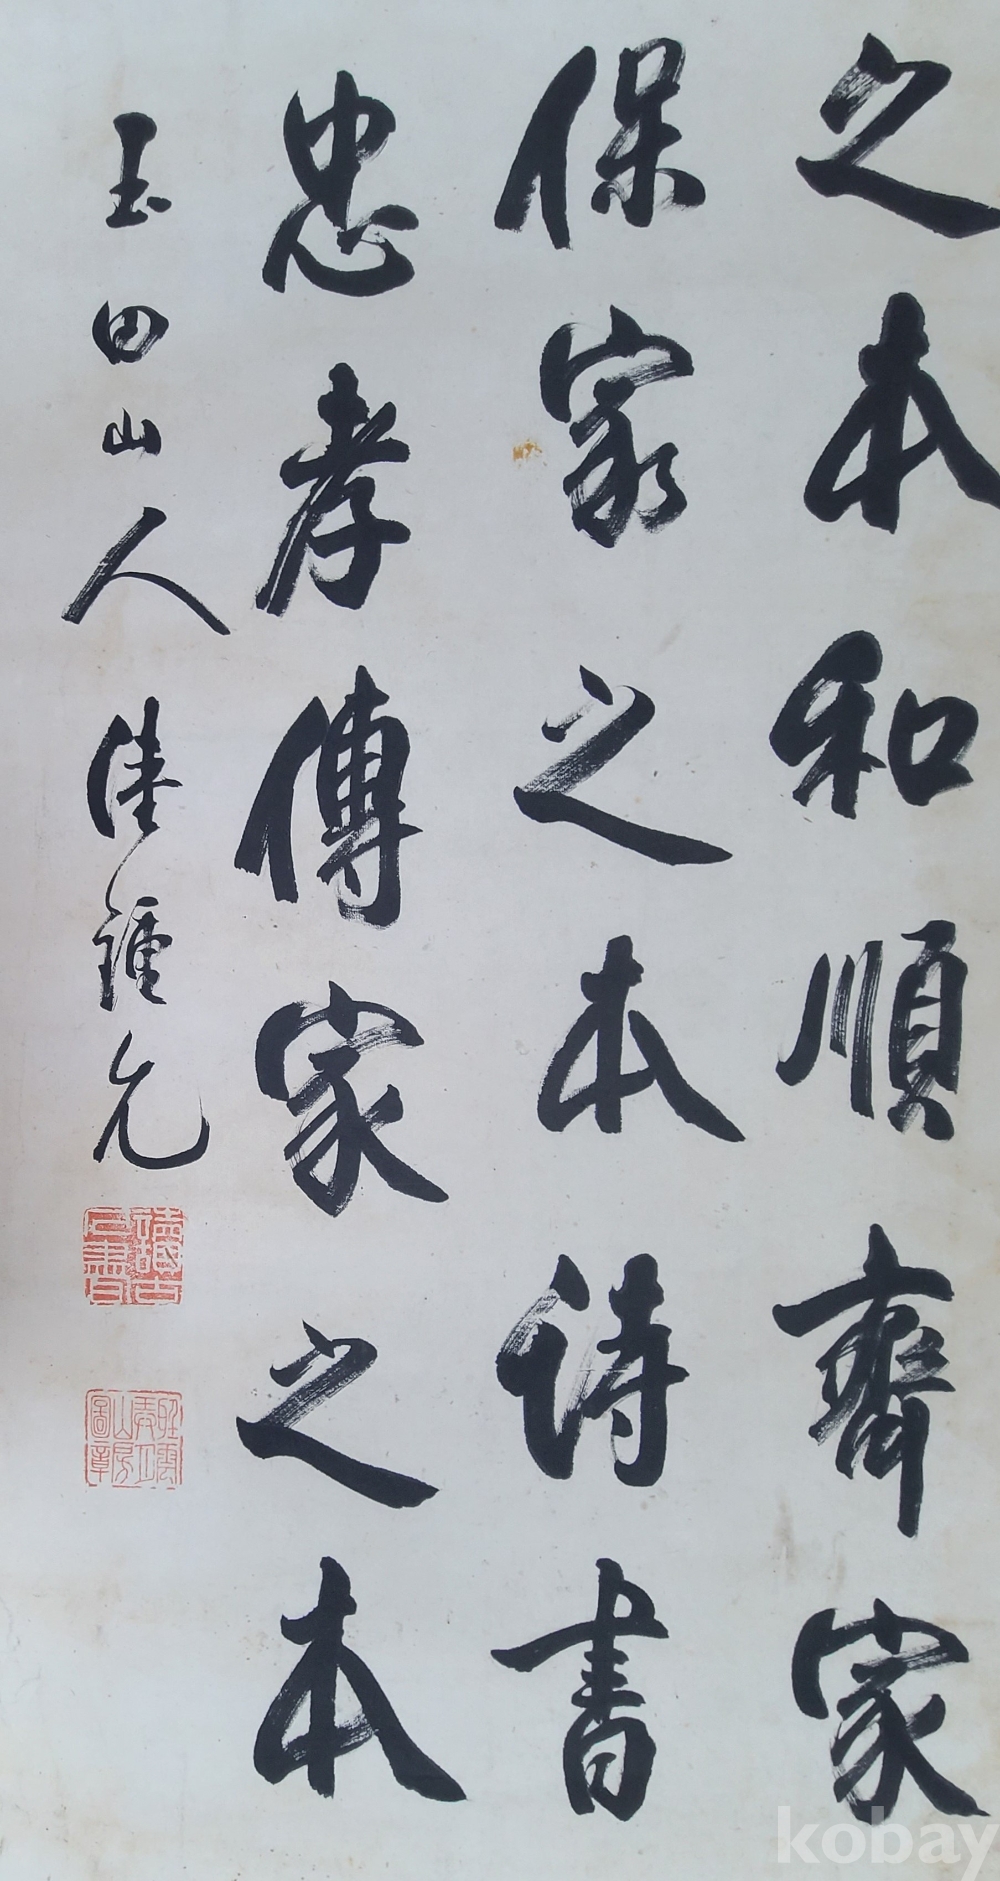 之本和順齊家
保家之本詩書
忠孝傳家之本
玉田山人佳鍾允
kobay